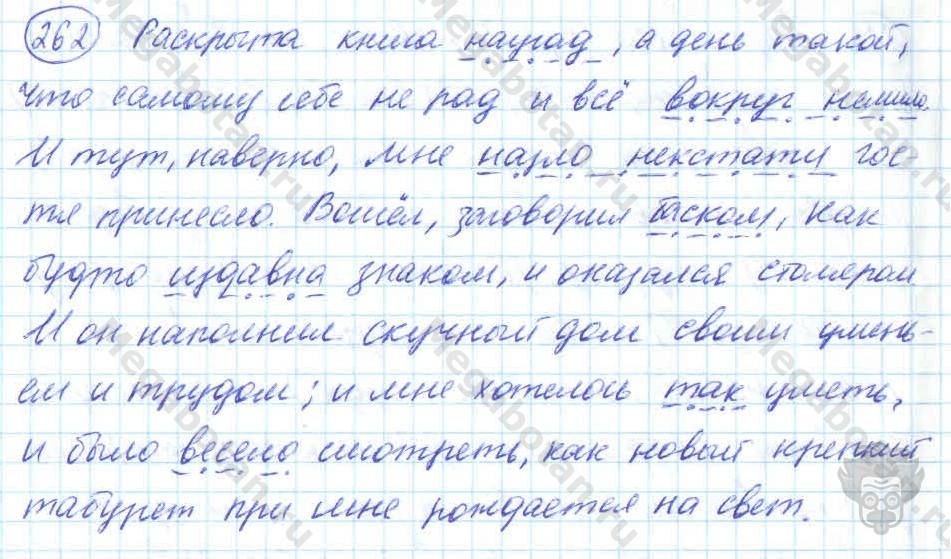 262 Раскрыта книга наугад, а день такой,
что самому себе не рад и всё вокруг немило.
И тут, наверно, мне назло некстати гос-
тя принесло. Вошёл, заговорил баском, как
будто издавна знаком, и оказался столяром.
И он наполнил скучный дом своим умень-
ем и трудом; и мне хотелось так уметь,
и было весело смотреть, как новый крепкий
табурет при мне рождается на свет.
Megabotan.ru